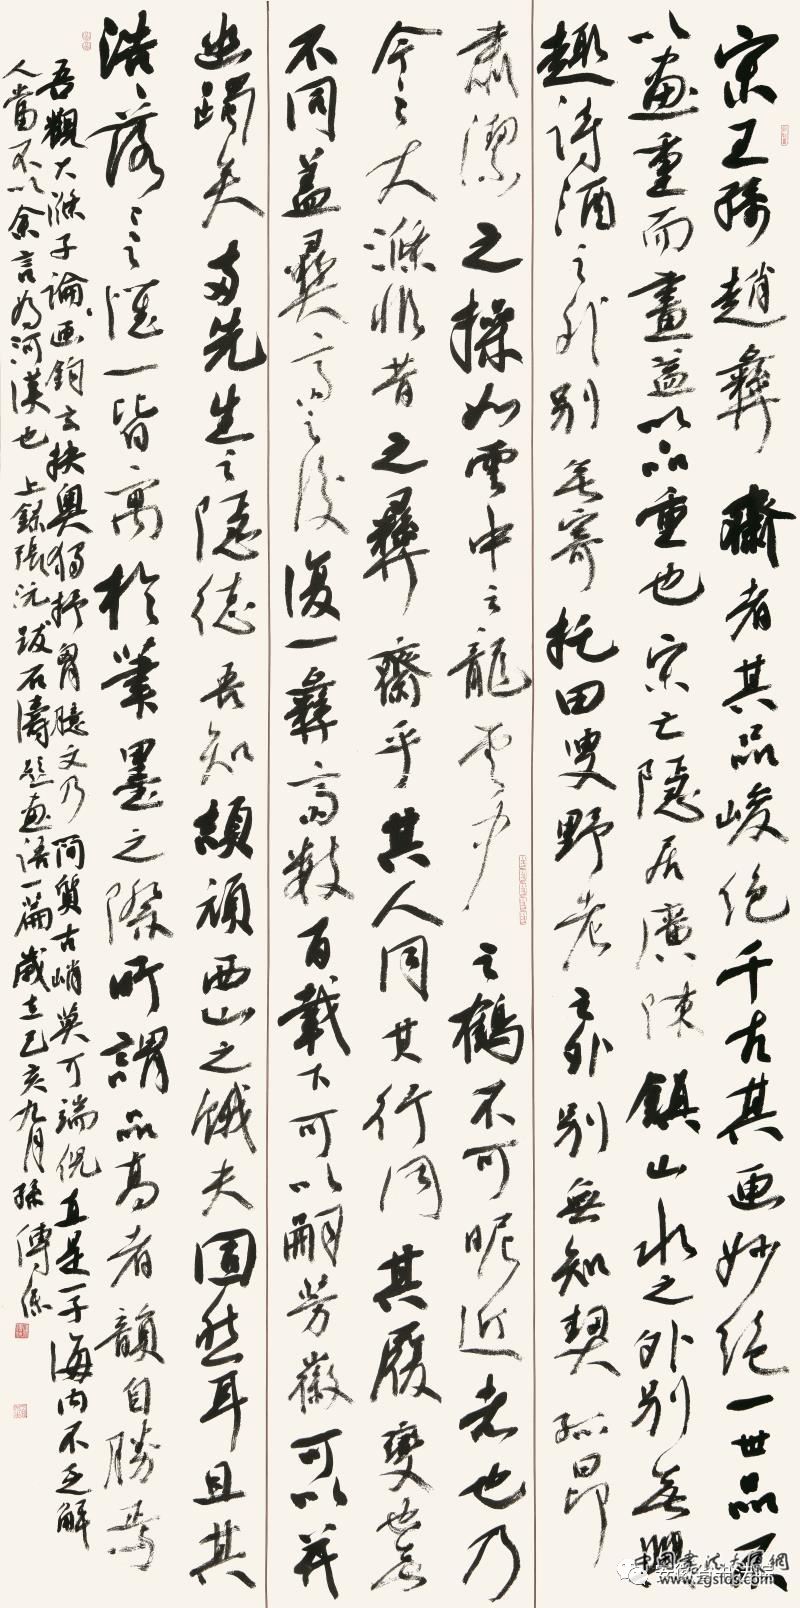 宋王孫趙彝齋者其品峻絕千古其画妙絕一世品不
以畫重而畫益以品重也宋亡隱居廣陳鎮山水之外別無興
趣詩酒之外別無寄托田叟野老之外別無知契孤昂
肅潔之操如雲中之龍雲中之鶴不可昵近者也乃
今之大滌非昔之彝齋乎其人同其行同其履變也無
不同蓋彝齋之後復一彝齋數百載下可以嗣芳徽可以并
幽躅矣两先生之隱德吾知頡頏西山之餓夫固然耳且其
浩浩落落之懷一皆寓於筆墨之際所謂品高者韻自勝焉
吾觀大滌子論画鉤玄抉奧獨抒胸臆文乃簡質古峭莫可端倪直是一子海内不乏解
人當不以余言為河漢也 上錄張沅跋石濤題畫語一篇歲在己亥九月孫傳
中國書法大展網
www.zgsfds.com